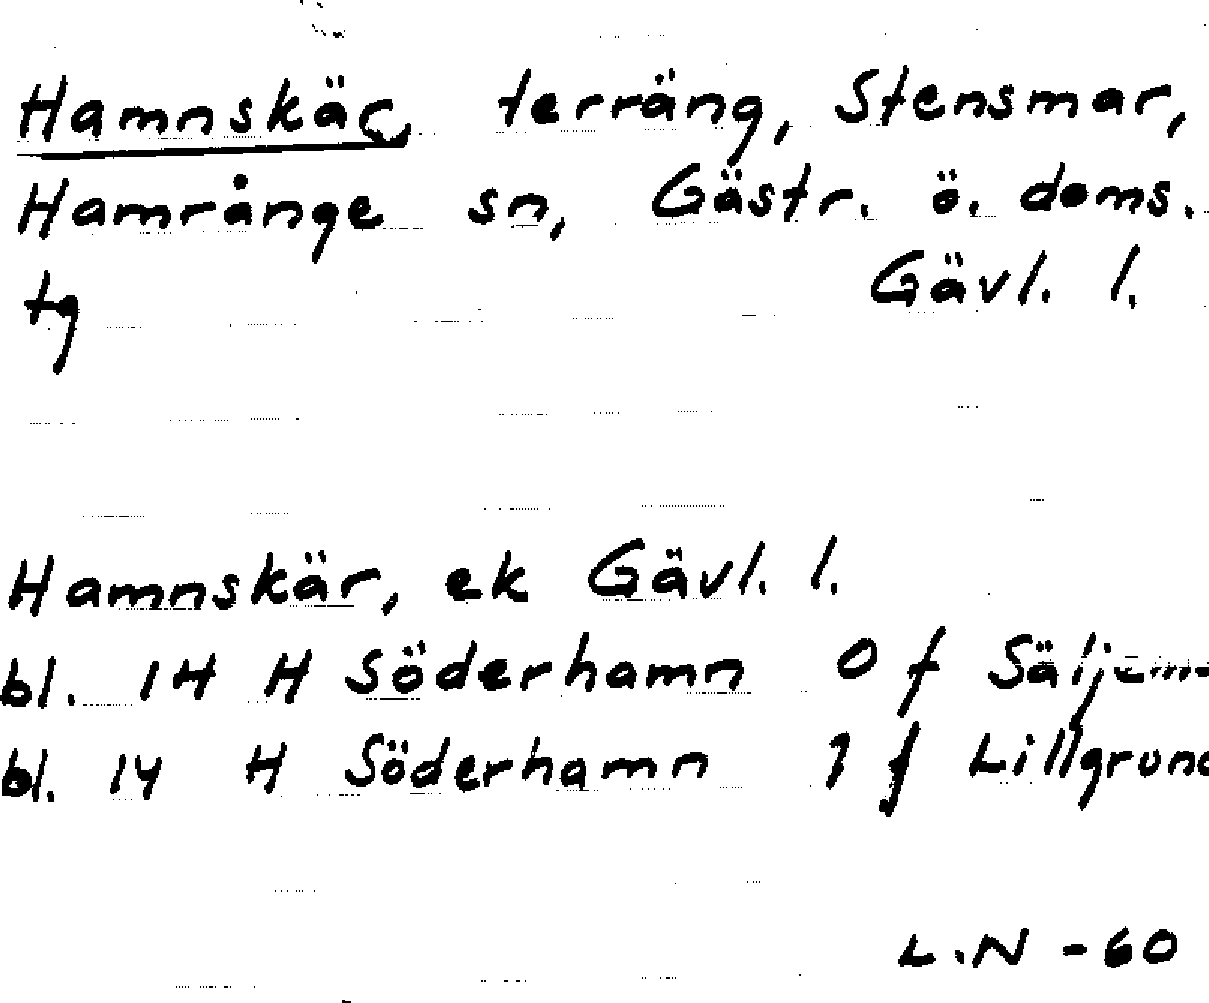 Hamnskär, terräng, Stensmar,
Hamrånge sn, Gästr. ö. doms.
tg Gävl. l.
Hamnskär, ek Gävl. l.
bl. 14 H Söderhamn 0 f
bl. 14 H Söderhamn 1 f Lillgrund
L.N -60